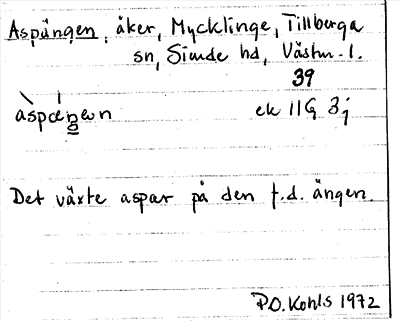 Aspängen, åker, Mycklinge, Tillberga
sn, Siende hd, Västm. l.
39
àspæŋen ek 11G 3j
Det växte aspar på den f.d. ängen.
P.O. Kohls 1972